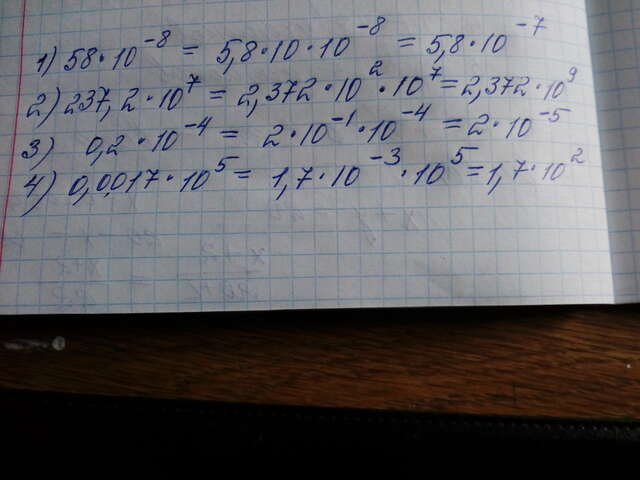 1) 58·10⁻⁸ = 5,8·10·10⁻⁸ = 5,8·10⁻⁷
2) 237,2·10⁷ = 2,372·10²·10⁷ = 2,372·10⁹
3) 0,2·10⁻⁴ = 2·10⁻¹·10⁻⁴ = 2·10⁻⁵
4) 0,0017·10⁵ = 1,7·10⁻³·10⁵ = 1,7·10²